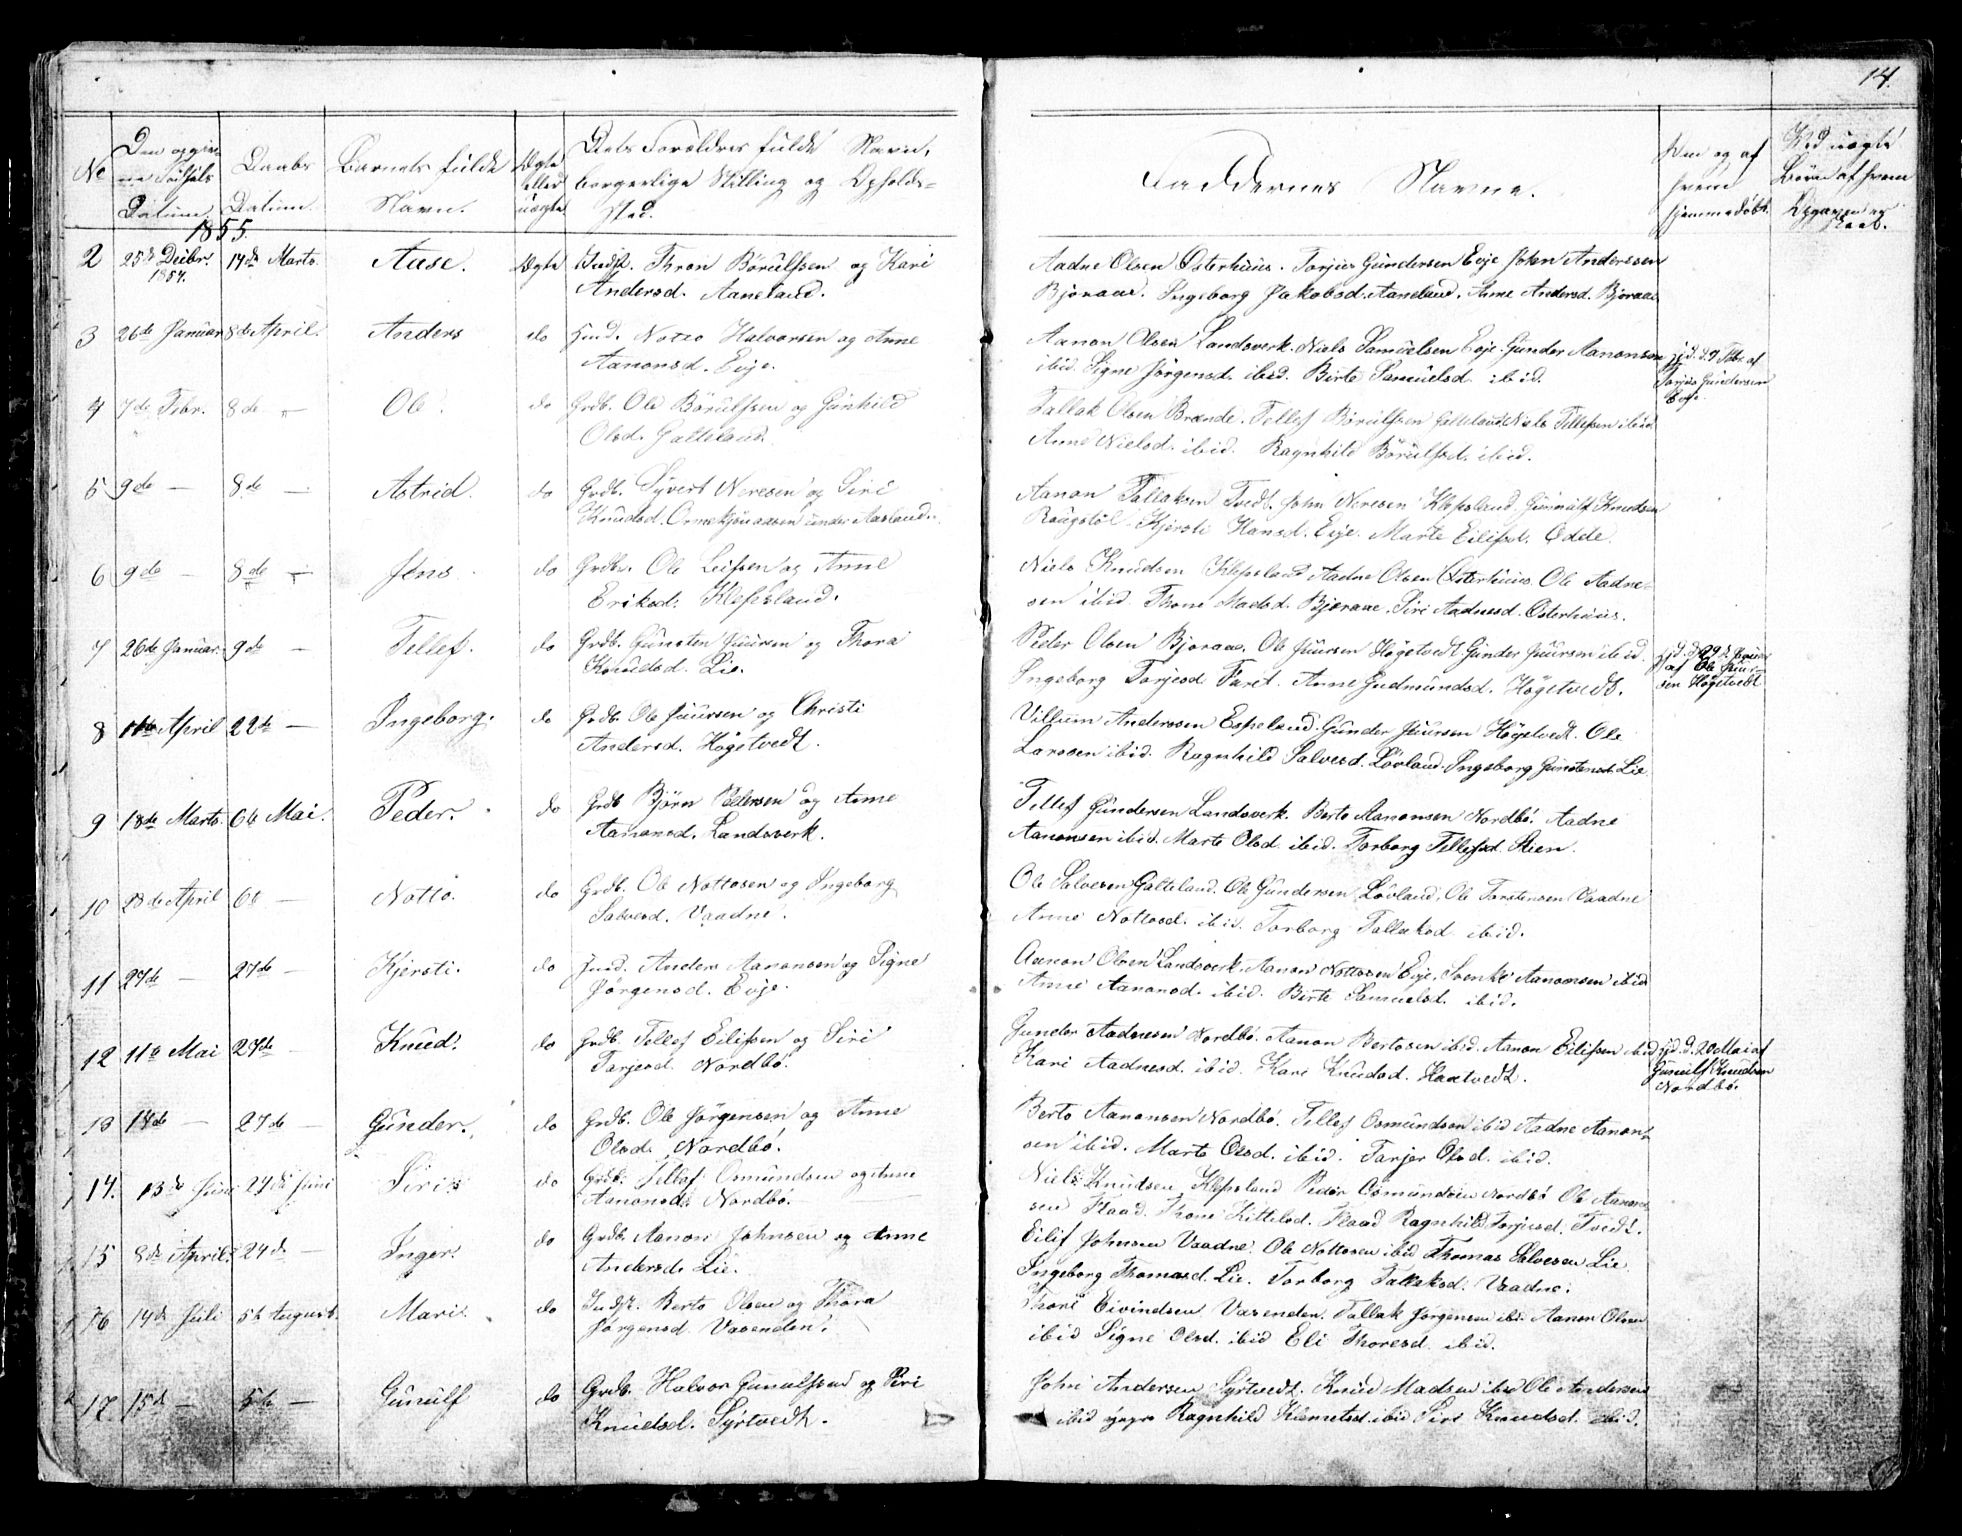 14.
No
Den opgiv-
ne Fødsels
Datum.
Daabs
Datum.
Barnets fulde
Navn.
Ægte
eller
uægte
Dets Forældres fulde Navn,
borgerlige Stilling og Opholds-
sted.
Faddernes Navne.
hvem
hjemmedøbt.
Ved uægte
Børn af hvem
1855.
2 25de Decbr. 1854. 14de Marts. Aase. Ægte Indst. Thron Börulfsen og Kari
Andersd. Aaneland.
Aadne Olsen Osterhuus. Torjus Gundersen Evje John Anderssen
Bjoraae. Ingeborg Jakobsd. Aaneland. Anne Andersd. Bjoraae
3 26de Januar 8de April. Anders do Notto Halvorsen og Anne
Aanonsd. Evje.
Aanon Olsen Landsverk. Niels Samuelsen Evje. Gunder Aanonsen
ibid. Signe Jörgensd. ibid. Birte Samuelsd. ibid.
Torjus Gundersen
Evje.
4 7de Febr. 8de — Ole. do Grdb. Ole Börulfsen og Gunhild
Olsd. Galteland.
Tallak Olsen Brænde. Tellef Börulfsen Galteland Niels Tellefsen ibid.
Anne Nielsd. ibid. Ragnhild Börulfsd. ibid.
5 9de — 8de — Astrid. do Grdb. Syvert Neresen og Siri
Knudsd.
Aanon Tallaksen Tvedt. John Neresen Klepsland. Gunnulf Knudsen
Kjersti Hansd. Evje. Marte Eilifsd. Odde.
6 9de — 8de — Jens do Grdb. Ole Leifsen og Anne
Eriksd. Klepsland.
Niels Knudsen Klepsland Aadne Olsen Osterhuus. Ole Aadne-
sen ibid. Thone Madsd. Bjoraae. Siri Aadnesd. Osterhuus.
7 26de Januar. 9de — Tellef. do Grdb. Gunsten Juursen og Thora
Knudsd. Lie.
Peder Olsen Bjoraae. Ole Juursen Högetvedt Gunder Juursen ibid.
Ingeborg Torjesd. Anne Gudmundsd. Högetvedt.
af Ole Juur-
sen Högetvedt
8 April 22de — Ingeborg. do Grdb. Ole Juursen og Christi
Andersd. Högetvedt.
Villum Anderssen Espeland. Gunder Juursen Högetvedt. Ole
Larssen ibid. Ragnhild Salvesd. Lövland. Ingeborg Gunstensd. Lie.
9 18de Marts. 6te Mai. Peder. do Grdb Björn Pedersen og Anne
Aanonsd. Landsverk.
Tellef Gundersen Landsverk. Berto Aanonsen Nordbö. Aadne
Aanonsen ibid. Marte Olsd. ibid. Torborg Tellefsd. Stien.
10 28de April 6te — Notto. do Grdb. Ole Nottosen og Ingeborg
Salvesd. Vaadne.
Ole Salvesen Galteland. Ole Gundersen Lövland. Ole Torstensen Vaadne
Anne Nottosd. ibid. Torborg Tallaksd. ibid.
11 27de — 27de — Kjersti. do Anders Aanonsen og Signe
Jörgensd. Evje.
Aanon Olsen Landsverk. Aanon Nottosen Evje. Svenke Aanonsen ibid
Anne Aanonsd. ibid. Birte Samuelsd. ibid.
12 11te Mai 27de — Knud. do Grdb. Tellef Eilifsen og Siri
Tarjesd. Nordbö.
Gunder Aadnesen Nordbö. Aanon Bertosen ibid. Aanon Eilifsen ibid
Kari Aadnesd. ibid. Kari Knudsd. Haatvedt.
hjd. d. 20 Mai af
Gunulf Knudsen
Nordbö.
13 14de — 27de — Gunder. do Grdb. Ole Jörgensen og Anne
Olsd. Nordbö.
Berto Aanonsen Nordbö. Tellef Osmundsen ibid Aadne Aanon-
sen ibid. Marte Olsd. ibid. Tarjer Olsd. ibid.
14. 13de Juni 24de Juni Siri. do Grdb. Tellef Osmundsen og Anne
Aanonsd. Nordbö.
Niels Knudsen Klepsland Peder Osmundsen Nordbö Ole Aanon-
sen Flaad. Thone Kittelsd. Flaad Ragnhild Torjusd. Tvedt.
15 8de April. 24de — Inger. do Grdb. Aanon Johnsen og Anne
Andersd. Lie.
Eilif Johnsen Vaadne. Ole Nottosen ibid Thomas Salvesen Lie
Ingeborg Thomasd. Lie. Torborg Tallaksd. Vaadne.
16 14de Juli 5te August. Mari. do Indst. Berto Olsen og Thora
Jörgensd. Vasenden.
Thore Eivindsen Vasenden. Tallak Jörgensen ibid. Aanon Olsen
ibid Signe Olsd. ibid Eli Thoresd. ibid.
17 15de — 5te — Gunulf do Grdb. Halvor Gunulfsen og Siri
Knudsd. Syrtvedt.
John Andersen Syrtvedt. Knud Madsen ibid Ole Andersen
ibid Ragnhild Klemetsd. ibid Siri Knudsd. ibid.